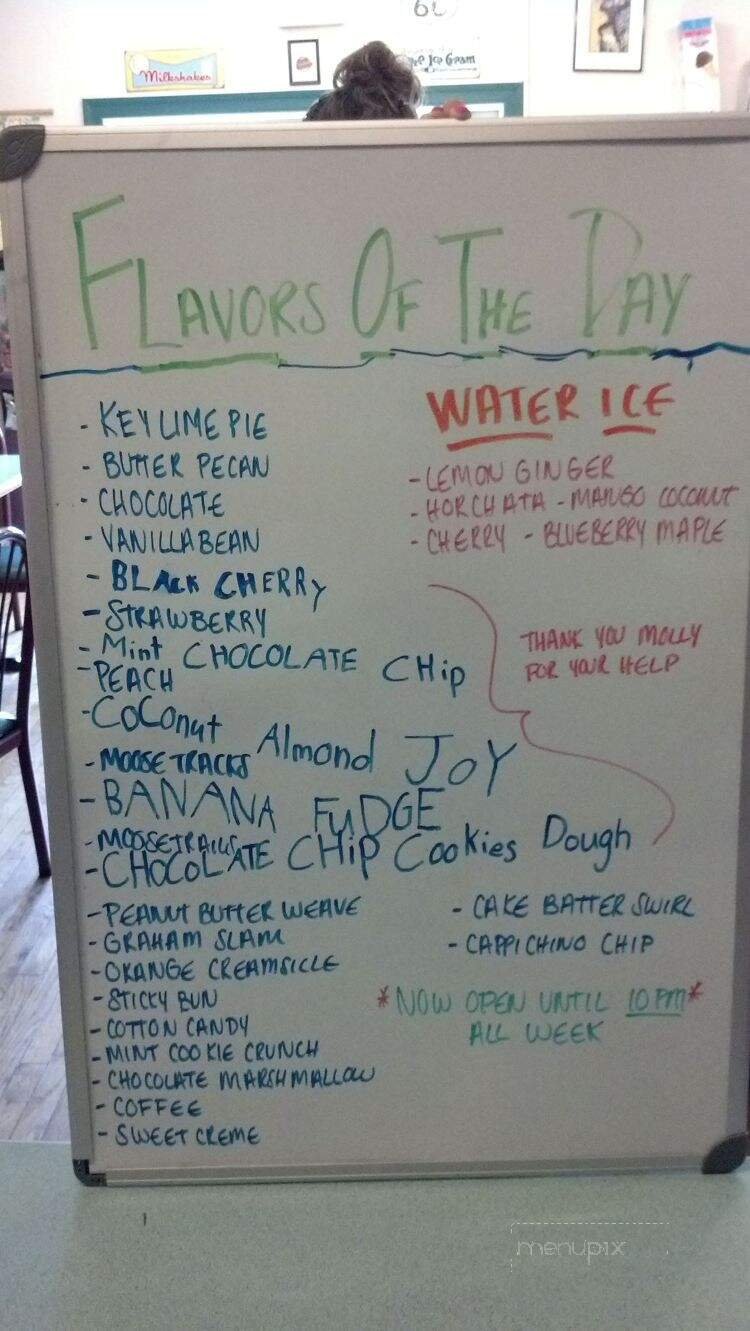 6L
Milkshakes
Ice Cream
FLAVORS OF THE DAY
- KEY LIME PIE
- BUTTER PECAN
- CHOCOLATE
- VANILLA BEAN
- BLACK CHERRY
- STRAWBERRY
- Mint CHOCOLATE CHip
- PEACH
- CoConut Almond JoY
- MOOSE TRACKS
- BANANA FuDGE
- MOOSETRAILS
- CHOCOLATE CHiP Cookies Dough
- PEANUT BUTTER WEAVE
- GRAHAM SLAM
- ORANGE CREAMSICLE
- STICKY BUN
- COTTON CANDY
- MINT COOKIE CRUNCH
- CHOCOLATE MARSHMALLOW
- COFFEE
- SWEET CREME
WATER ICE
- LEMON GINGER
- HORCHATA - MANGO COCONUT
- CHERRY - BLUEBERRY MAPLE
THANK YOU MOLLY
FOR YOUR HELP
- CAKE BATTER SWIRL
- CAPPICHINO CHIP
*NOW OPEN UNTIL 10 PM*
ALL WEEK
menupix